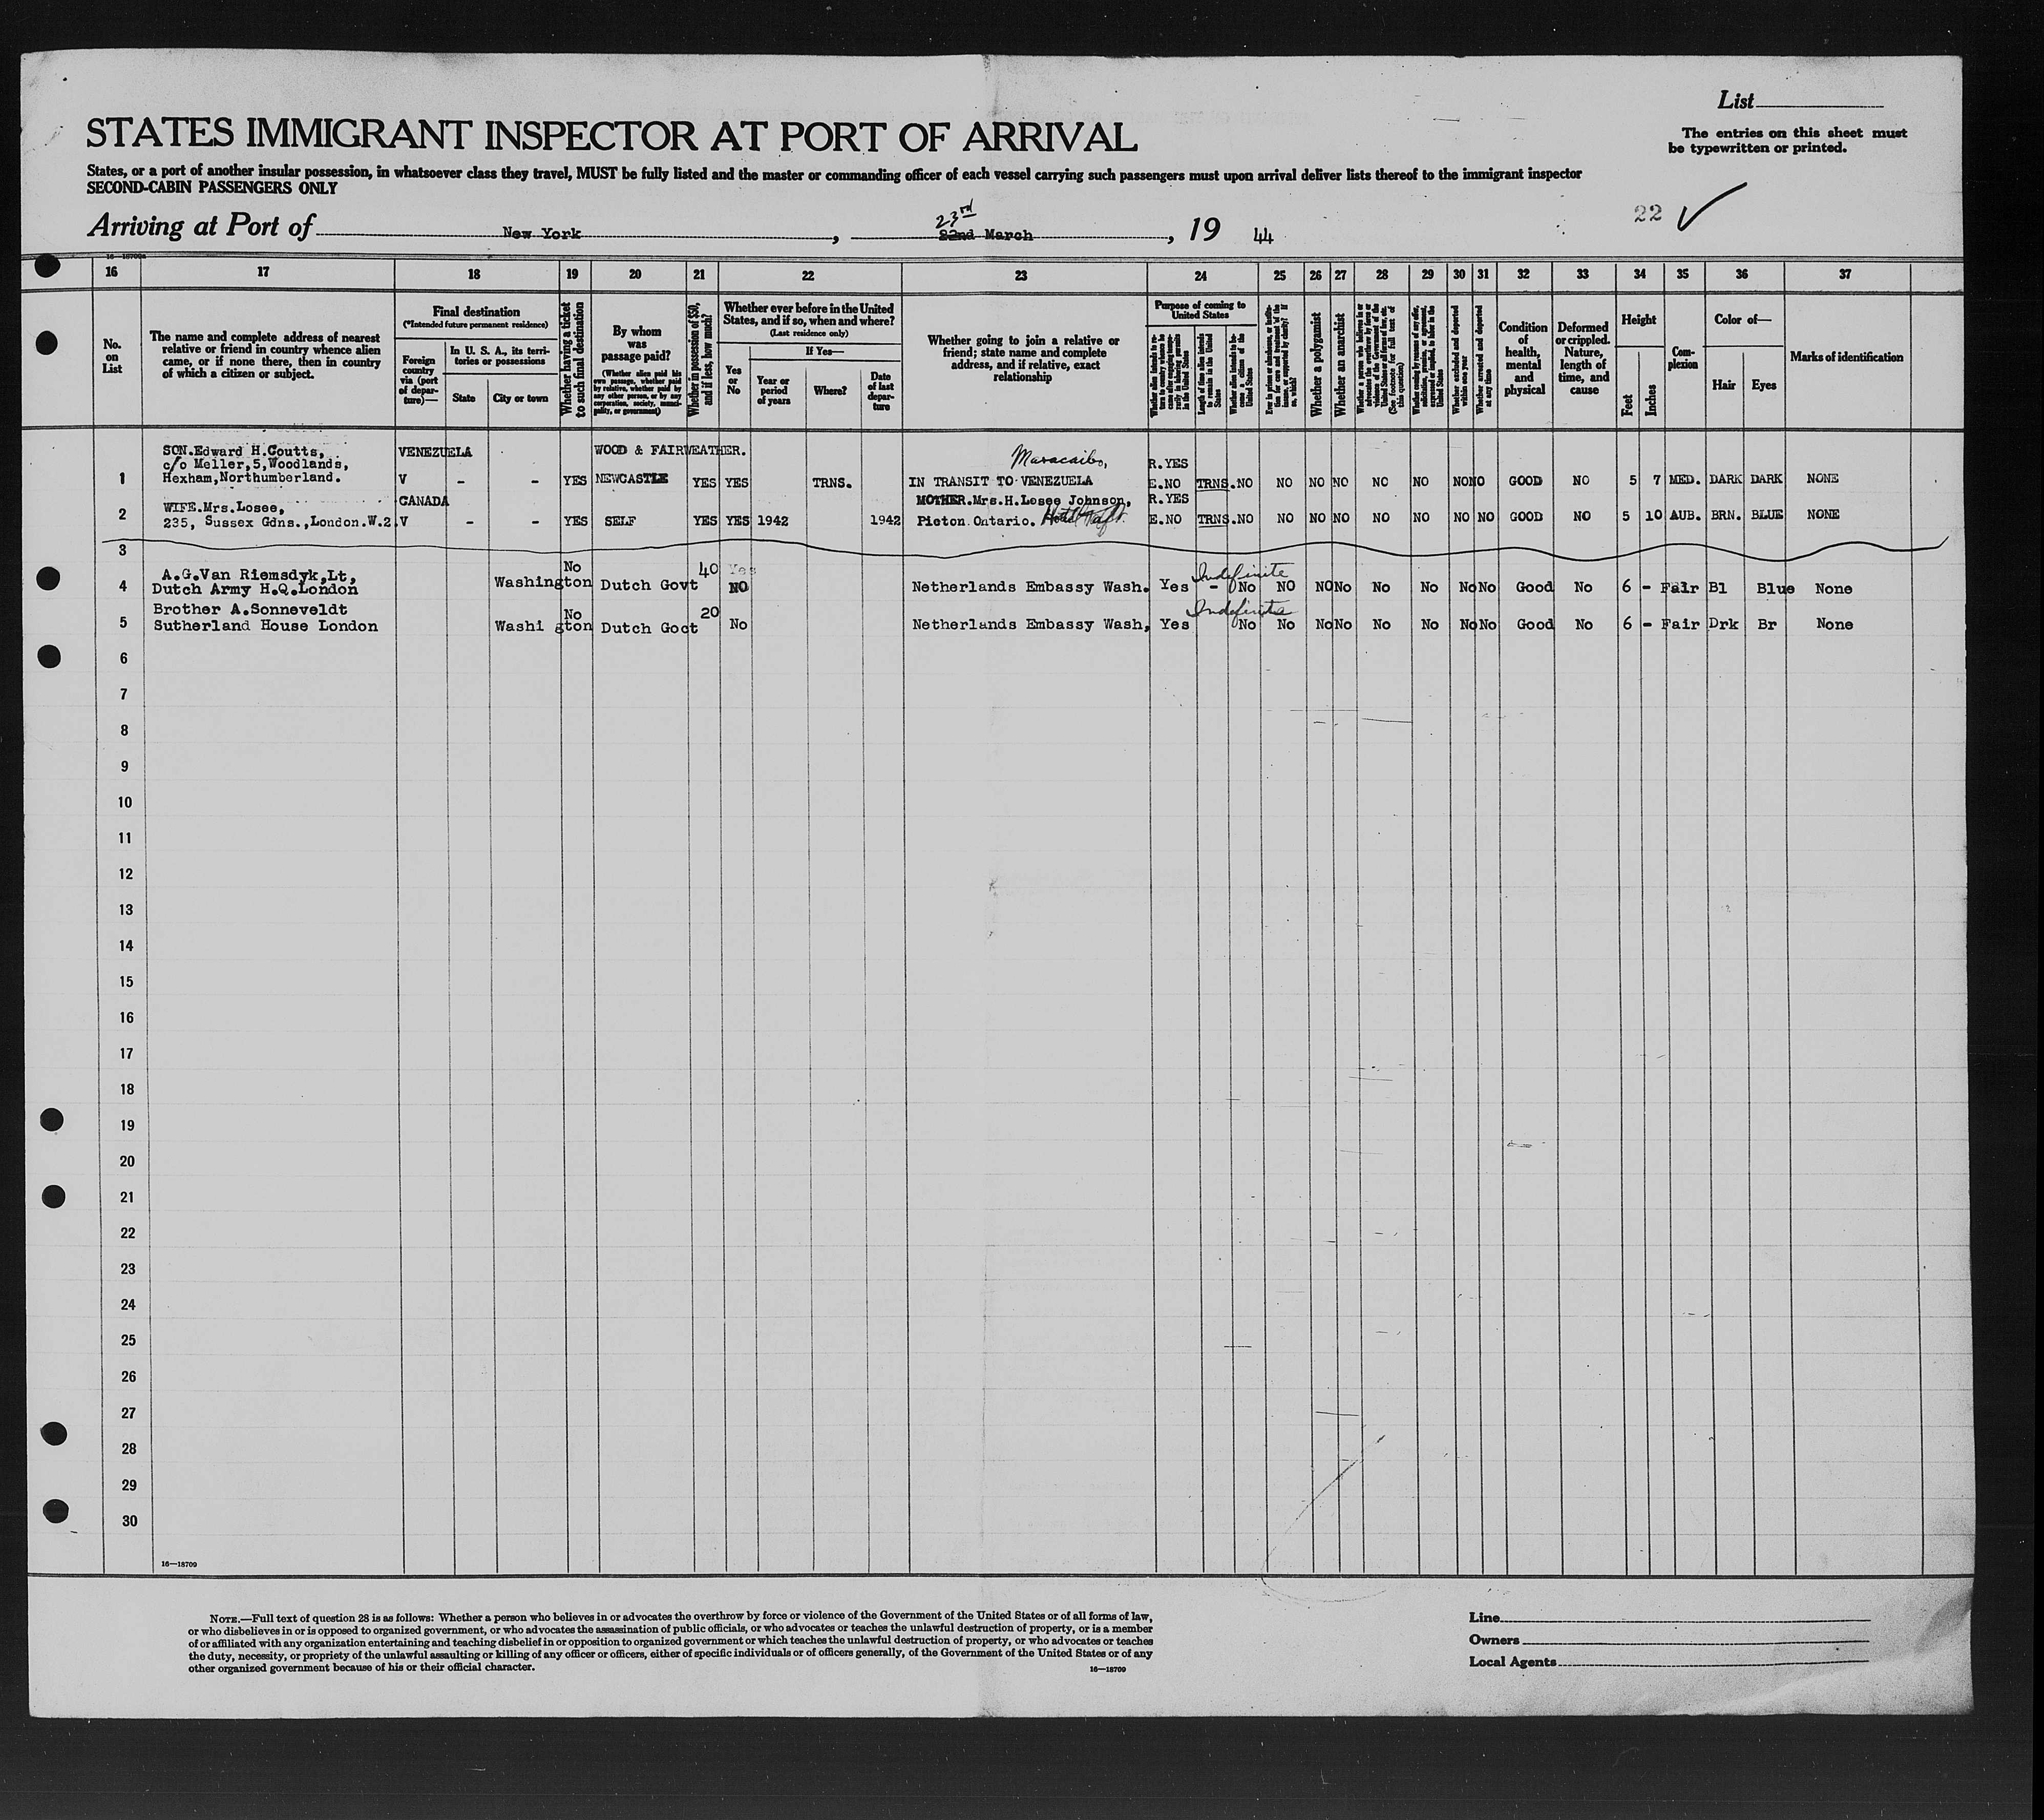 List
STATES IMMIGRANT INSPECTOR AT PORT OF ARRIVAL
The entries on this sheet must
be typewritten or printed.
States, or a port of another insular possession, in whatsoever class they travel, MUST be fully listed and the master or commanding officer of each vessel carrying such passengers must upon arrival deliver lists thereof to the immigrant inspector
SECOND-CABIN PASSENGERS ONLY
22
23rd
Arriving at Port of New York, 22nd March, 19 44
16—18709a
16 17 18 19 20 21 22 23 24 25 26 27 28 29 30 31 32 33 34 35 36 37
No.
on
List
The name and complete address of nearest
relative or friend in country whence alien
came, or if none there, then in country
of which a citizen or subject.
Final destination
(*Intended future permanent residence)
Foreign
country
via (port
of depar-
ture)—
In U. S. A., its terri-
tories or possessions
State
City or town
Whether having a ticket
to such final destination
By whom
was
passage paid?
(Whether alien paid his
own passage, whether paid
by relative, whether paid by
any other person, or by any
corporation, society, munici-
pality, or government)
Whether in possession of $50,
and if less, how much?
Whether ever before in the United
States, and if so, when and where?
(Last residence only)
Yes
or
No
If Yes—
Year or
period
of years
Where?
Date
of last
depar-
ture
Whether going to join a relative or
friend; state name and complete
address, and if relative, exact
relationship
Purpose of coming to
United States
Whether alien intends to re-
turn to country whence he
came after engaging tempo-
rarily in laboring pursuits
in the United States
Length of time alien intends
to remain in the United
States
Whether alien intends to be-
come a citizen of the
United States
Ever in prison or almshouse, or institu-
tion for care and treatment of the
insane, or supported by charity? If
so, which?
Whether a polygamist
Whether an anarchist
Whether a person who believes in or
advocates the overthrow by force or
violence of the Government of the
United States or all forms of law, etc.
(See footnote for full text of
this question)
Whether coming by reason of any offer,
solicitation, promise, or agreement,
expressed or implied, to labor in the
United States
Whether excluded and deported
within one year
Whether arrested and deported
at any time
Condition
of
health,
mental
and
physical
Deformed
or crippled.
Nature,
length of
time, and
cause
Height
Feet
Inches
Com-
plexion
Color of—
Hair
Eyes
Marks of identification
SON.Edward H.Coutts, VENEZUELA WOOD & FAIRWEATHER. Maracaibo,
c/o Meller,5,Woodlands, R.YES
1 Hexham,Northumberland. V - - YES NEWCASTLE YES YES TRNS. IN TRANSIT TO VENEZUELA E.NO TRNS. NO NO NO NO NO NO NO NO GOOD NO 5 7 MED. DARK DARK NONE
WIFE.Mrs.Losee, CANADA MOTHER.Mrs.H.Losee Johnson, R.YES
2 235, Sussex Gdns.,London.W.2. V - - YES SELF YES YES 1942 1942 Picton.Ontario. Hotel Taft. E.NO TRNS. NO NO NO NO NO NO NO NO GOOD NO 5 10 AUB. BRN. BLUE NONE
3
A.G.Van Riemsdyk,Lt, No 40 Yes Indefinite
4 Dutch Army H.Q.London Washington Dutch Govt NO Netherlands Embassy Wash. Yes - No NO NO No No No No No Good No 6 - Fair Bl Blue None
Brother A.Sonneveldt No 20 Indefinite
5 Sutherland House London Washi gton Dutch Goct No Netherlands Embassy Wash, Yes No No No No No No No No Good No 6 - Fair Drk Br None
6
7
8
9
10
11
12
13
14
15
16
17
18
19
20
21
22
23
24
25
26
27
28
29
30
16—18709
NOTE.—Full text of question 28 is as follows: Whether a person who believes in or advocates the overthrow by force or violence of the Government of the United States or of all forms of law,
or who disbelieves in or is opposed to organized government, or who advocates the assassination of public officials, or who advocates or teaches the unlawful destruction of property, or is a member
of or affiliated with any organization entertaining and teaching disbelief in or opposition to organized government or which teaches the unlawful destruction of property, or who advocates or teaches
the duty, necessity, or propriety of the unlawful assaulting or killing of any officer or officers, either of specific individuals or of officers generally, of the Government of the United States or of any
other organized government because of his or their official character.
16—18709
Line
Owners
Local Agents